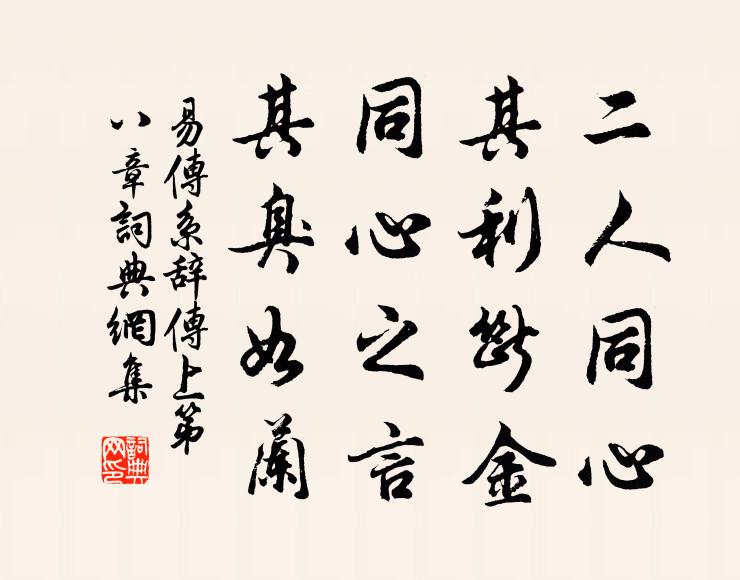 二人同心
其利斷金
同心之言
其臭如蘭
易傳系辞傳上第
八章詞典網集
詞典網印